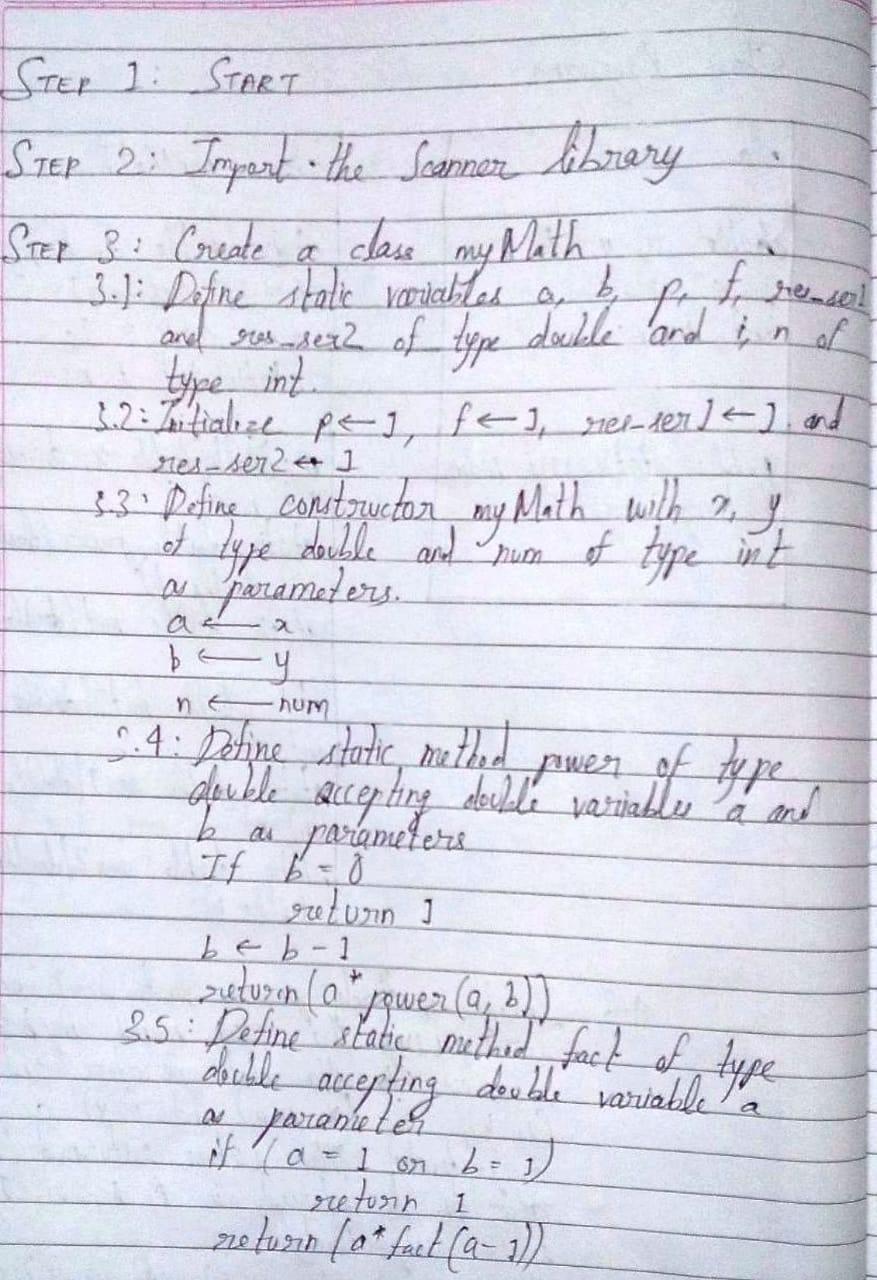 STEP 1: START
STEP 2: Import the Scanner library
STEP 3: Create a class myMath
3.1: Define static variables a, b, p, f, res_ser1
and res_ser2 of type double and i, n of
type int.
3.2: Initialize p ← 1, f ← 1, res_ser1 ← 1 and
res_ser2 ← 1
3.3: Define constructor myMath with x, y
of type double and num of type int
as parameters.
a ← x
b ← y
n ← num
3.4: Define static method power of type
double accepting double variables a and
b as parameters
If b = 0
return 1
b ← b - 1
return (a* power (a, b))
3.5: Define static method fact of type
double accepting double variable a
as parameter
if (a = 1 or b = 1)
return 1
return (a* fact (a-1))